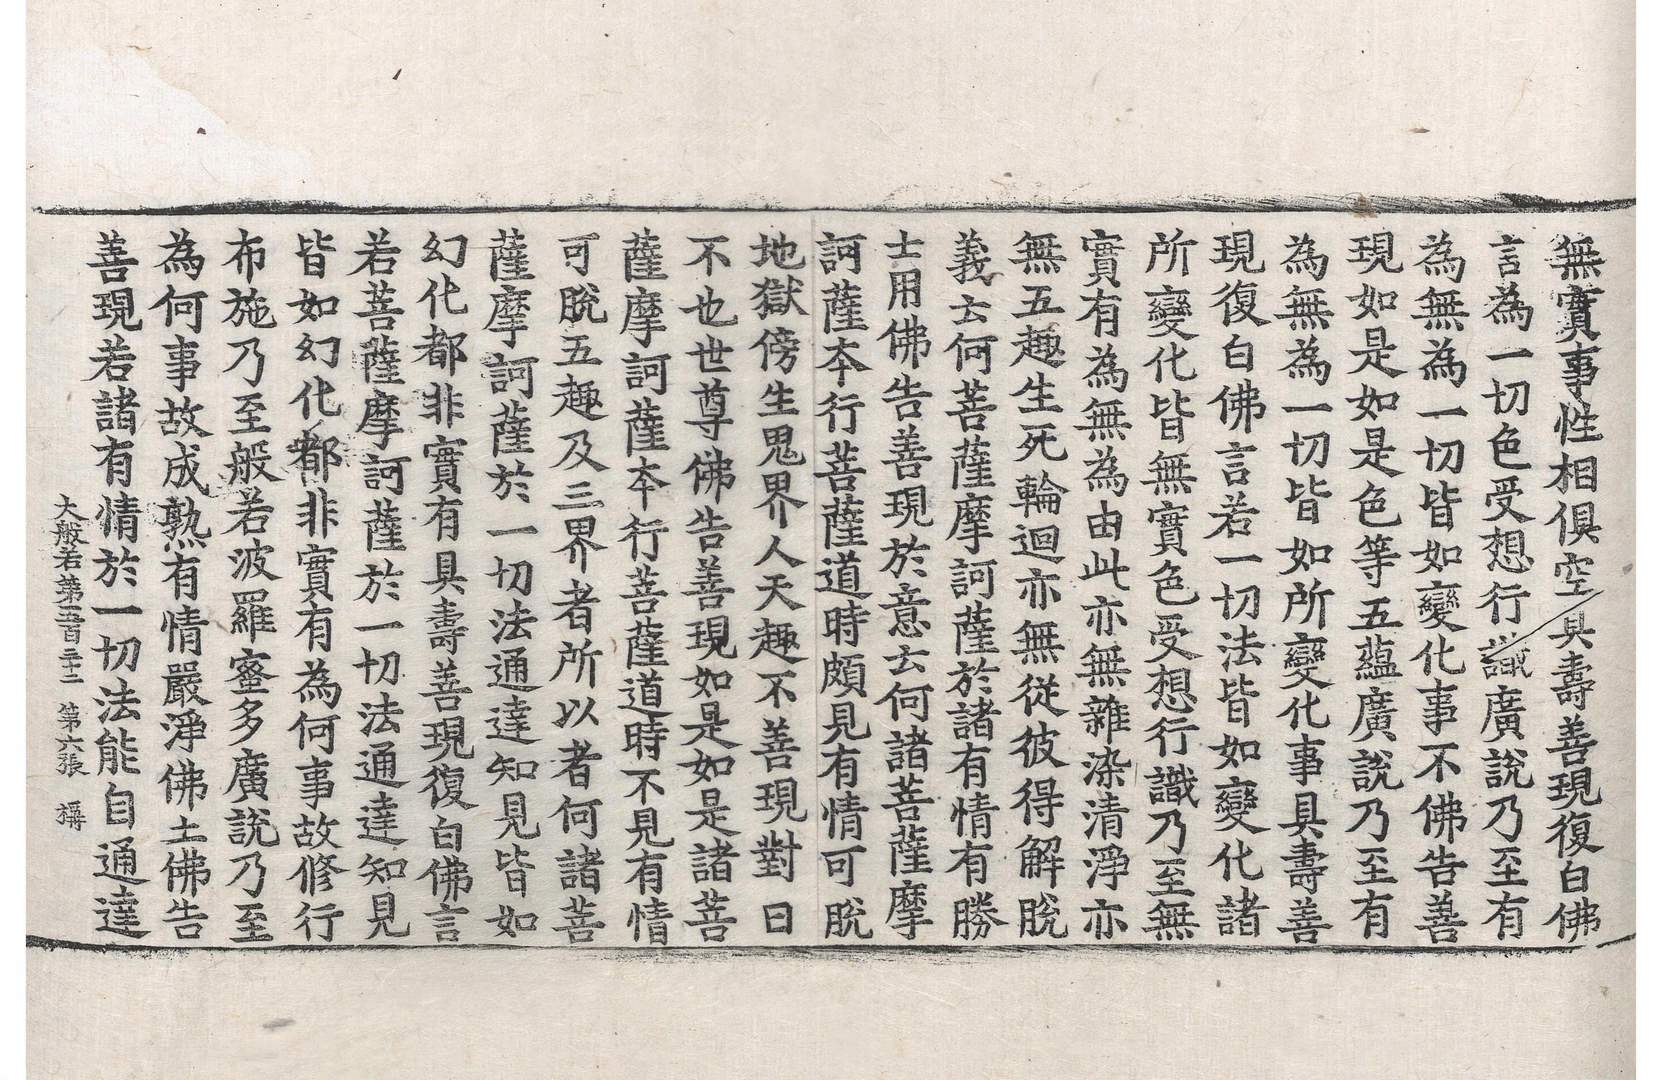 無實事性相俱空具壽善現復白佛
言為一切色受想行識廣說乃至有
為無為一切皆如變化事不佛告善
現如是如是色等五蘊廣說乃至有
為無為一切皆如所變化事具壽善
現復白佛言若一切法皆如變化諸
所變化皆無實色受想行識乃至無
實有為無為由此亦無雜染清淨亦
無五趣生死輪迴亦無從彼得解脫
義云何菩薩摩訶薩於諸有情有勝
士用佛告善現於意云何諸菩薩摩
訶薩本行菩薩道時頗見有情可脫
地獄傍生鬼界人天趣不善現對曰
不也世尊佛告善現如是如是諸菩
薩摩訶薩本行菩薩道時不見有情
可脫五趣及三界者所以者何諸菩
薩摩訶薩於一切法通達知見皆如
幻化都非實有具壽善現復白佛言
若菩薩摩訶薩於一切法通達知見
皆如幻化都非實有為何事故修行
布施乃至般若波羅蜜多廣說乃至
為何事故成熟有情嚴淨佛土佛告
善現若諸有情於一切法能自通達
大般若第五百二十二 第六張